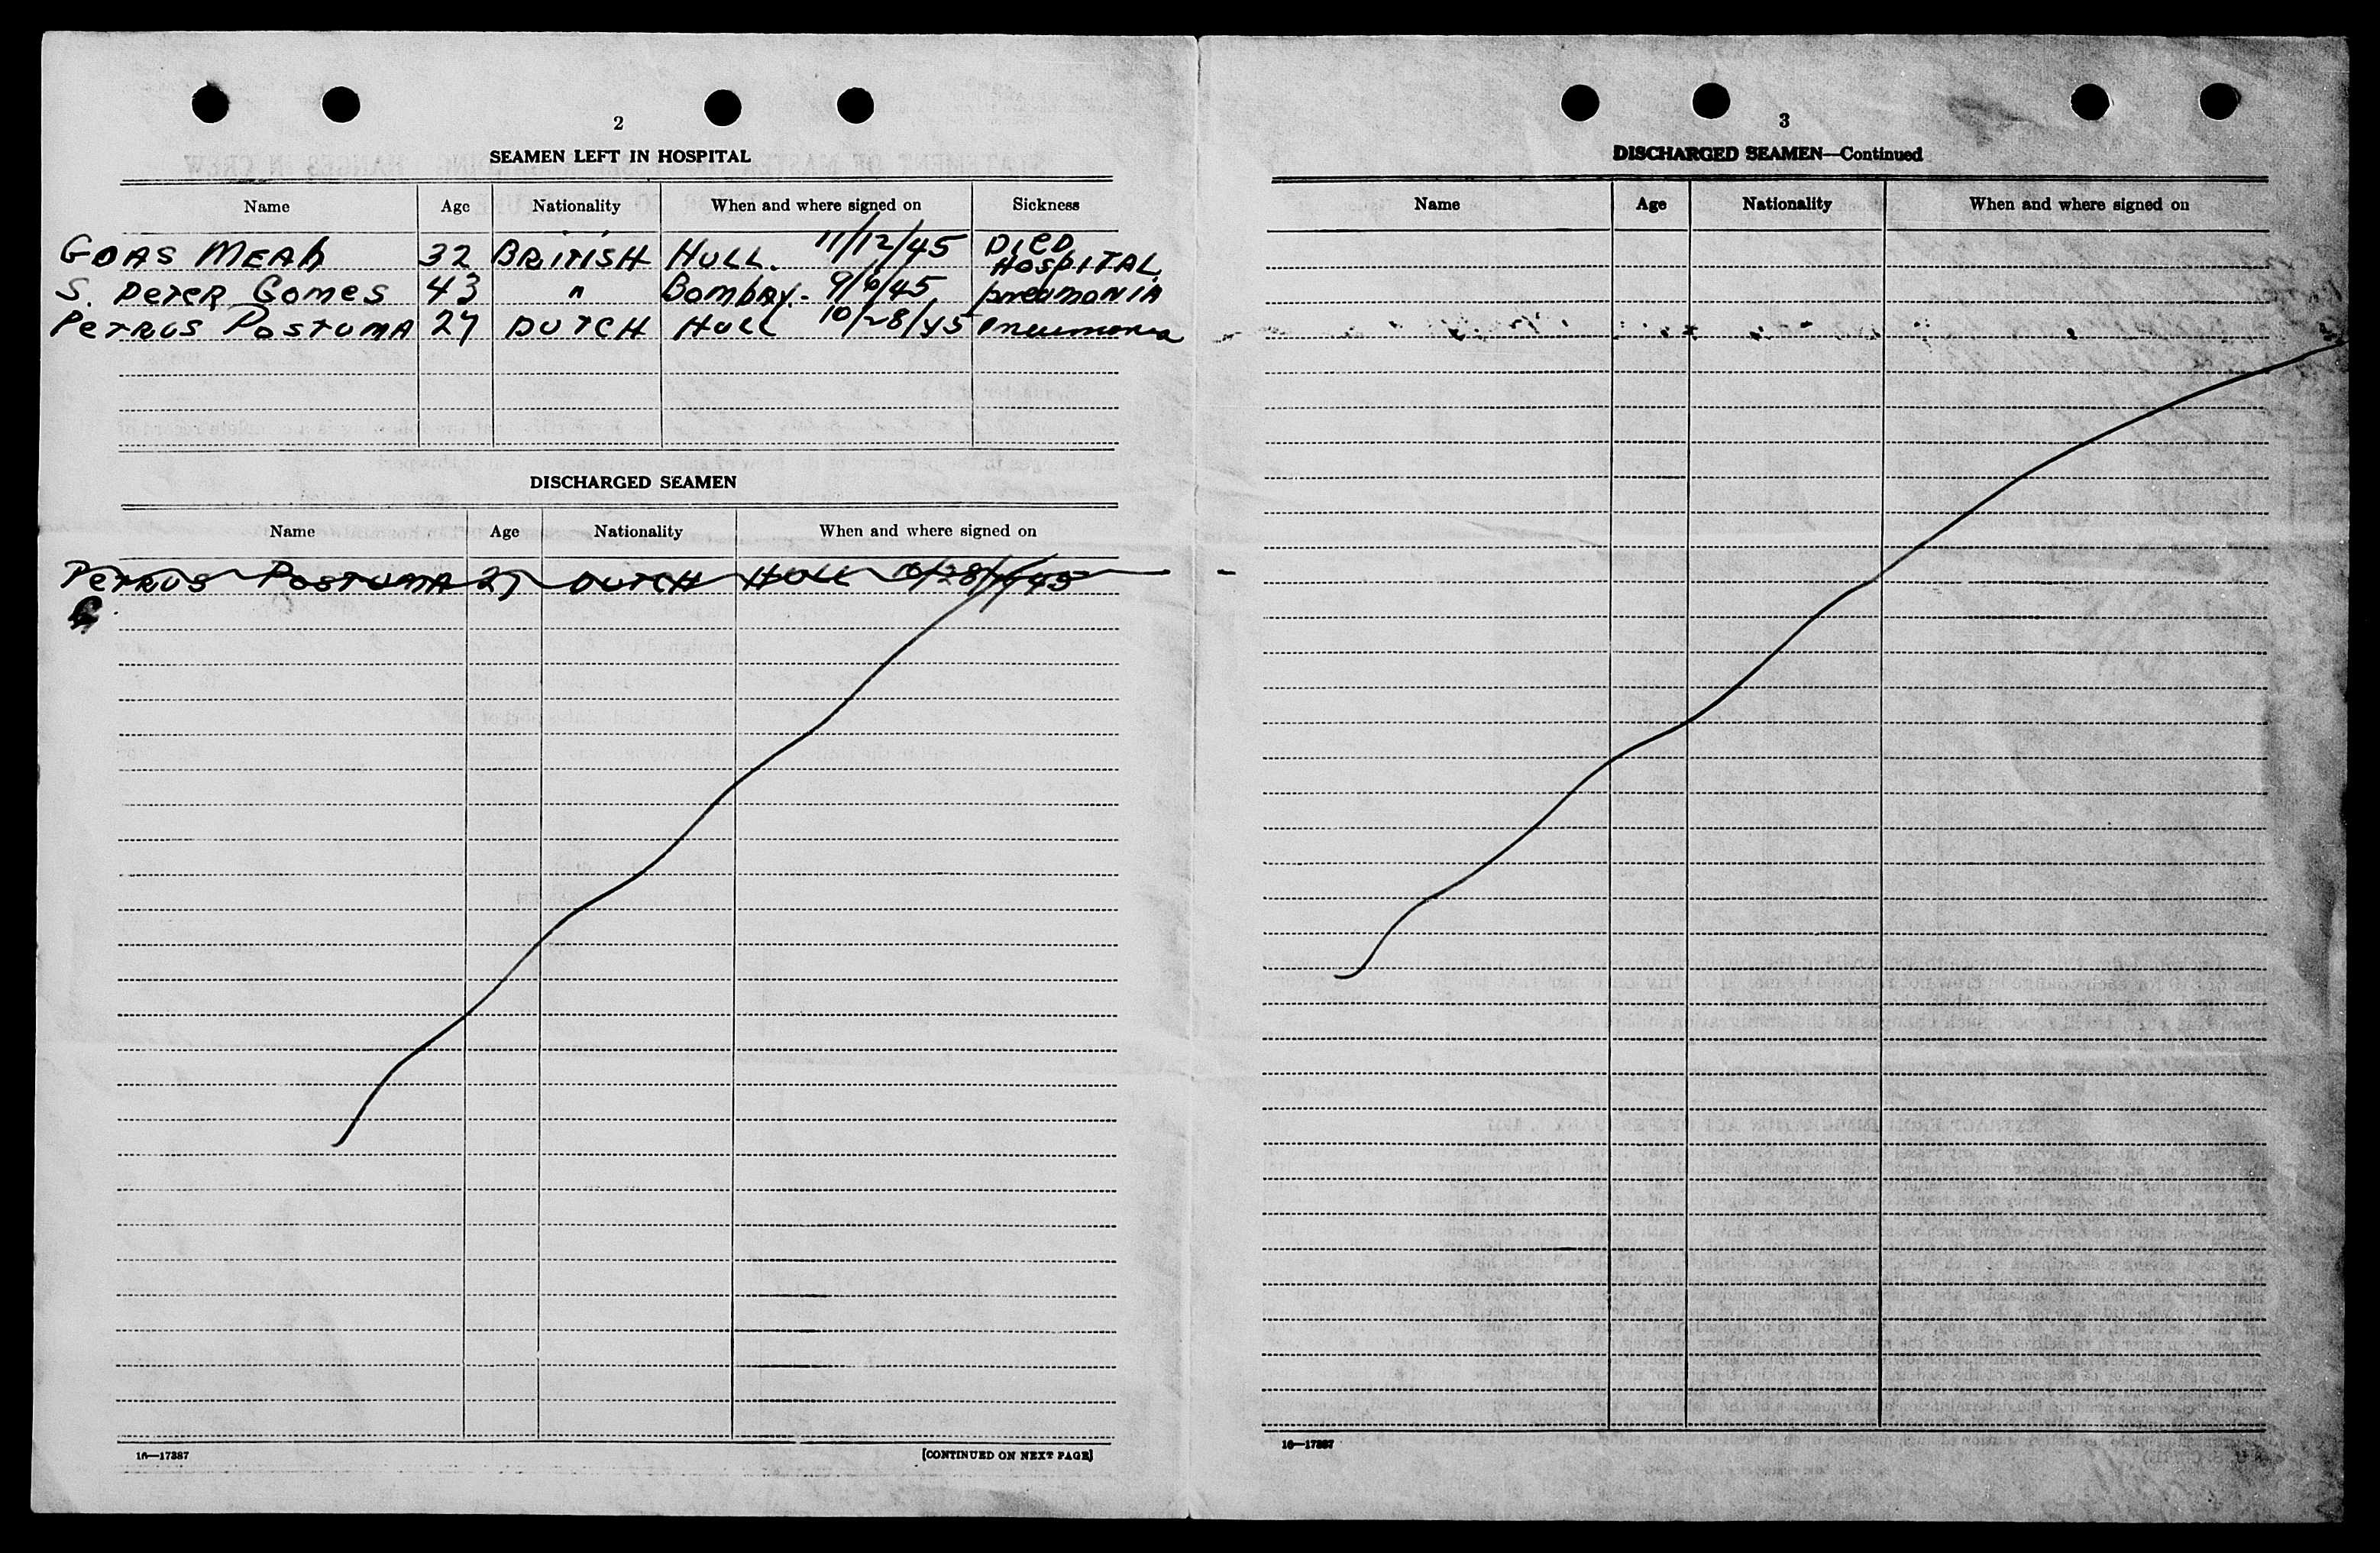 2
SEAMEN LEFT IN HOSPITAL
Name Age Nationality When and where signed on Sickness
GOAS MEAh 32 BRITISH HULL. 11/12/45 DIED HOSPITAL
S. PETER GOMES 43 " BOMBAY. 9/6/45 pneumonia
PETRUS POSTUMA 27 DUTCH HULL 10/28/45 pneumonia
DISCHARGED SEAMEN
Name Age Nationality When and where signed on
PETRUS POSTUMA 27 DUTCH HULL 10/28/45
16—17387
[CONTINUED ON NEXT PAGE]
3
DISCHARGED SEAMEN—Continued
Name Age Nationality When and where signed on
16—17387